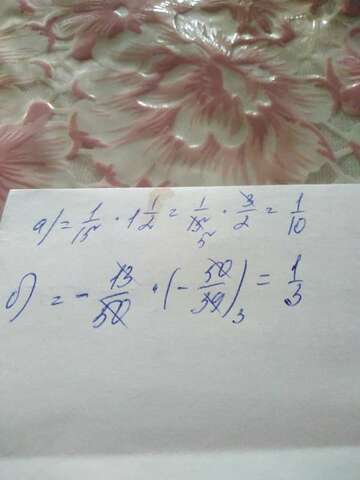 а) = 1/15 · 1 1/2 = 1/15 5 · 3/2 = 1/10
б) = - 13/50 · (- 50/39)3 = 1/3